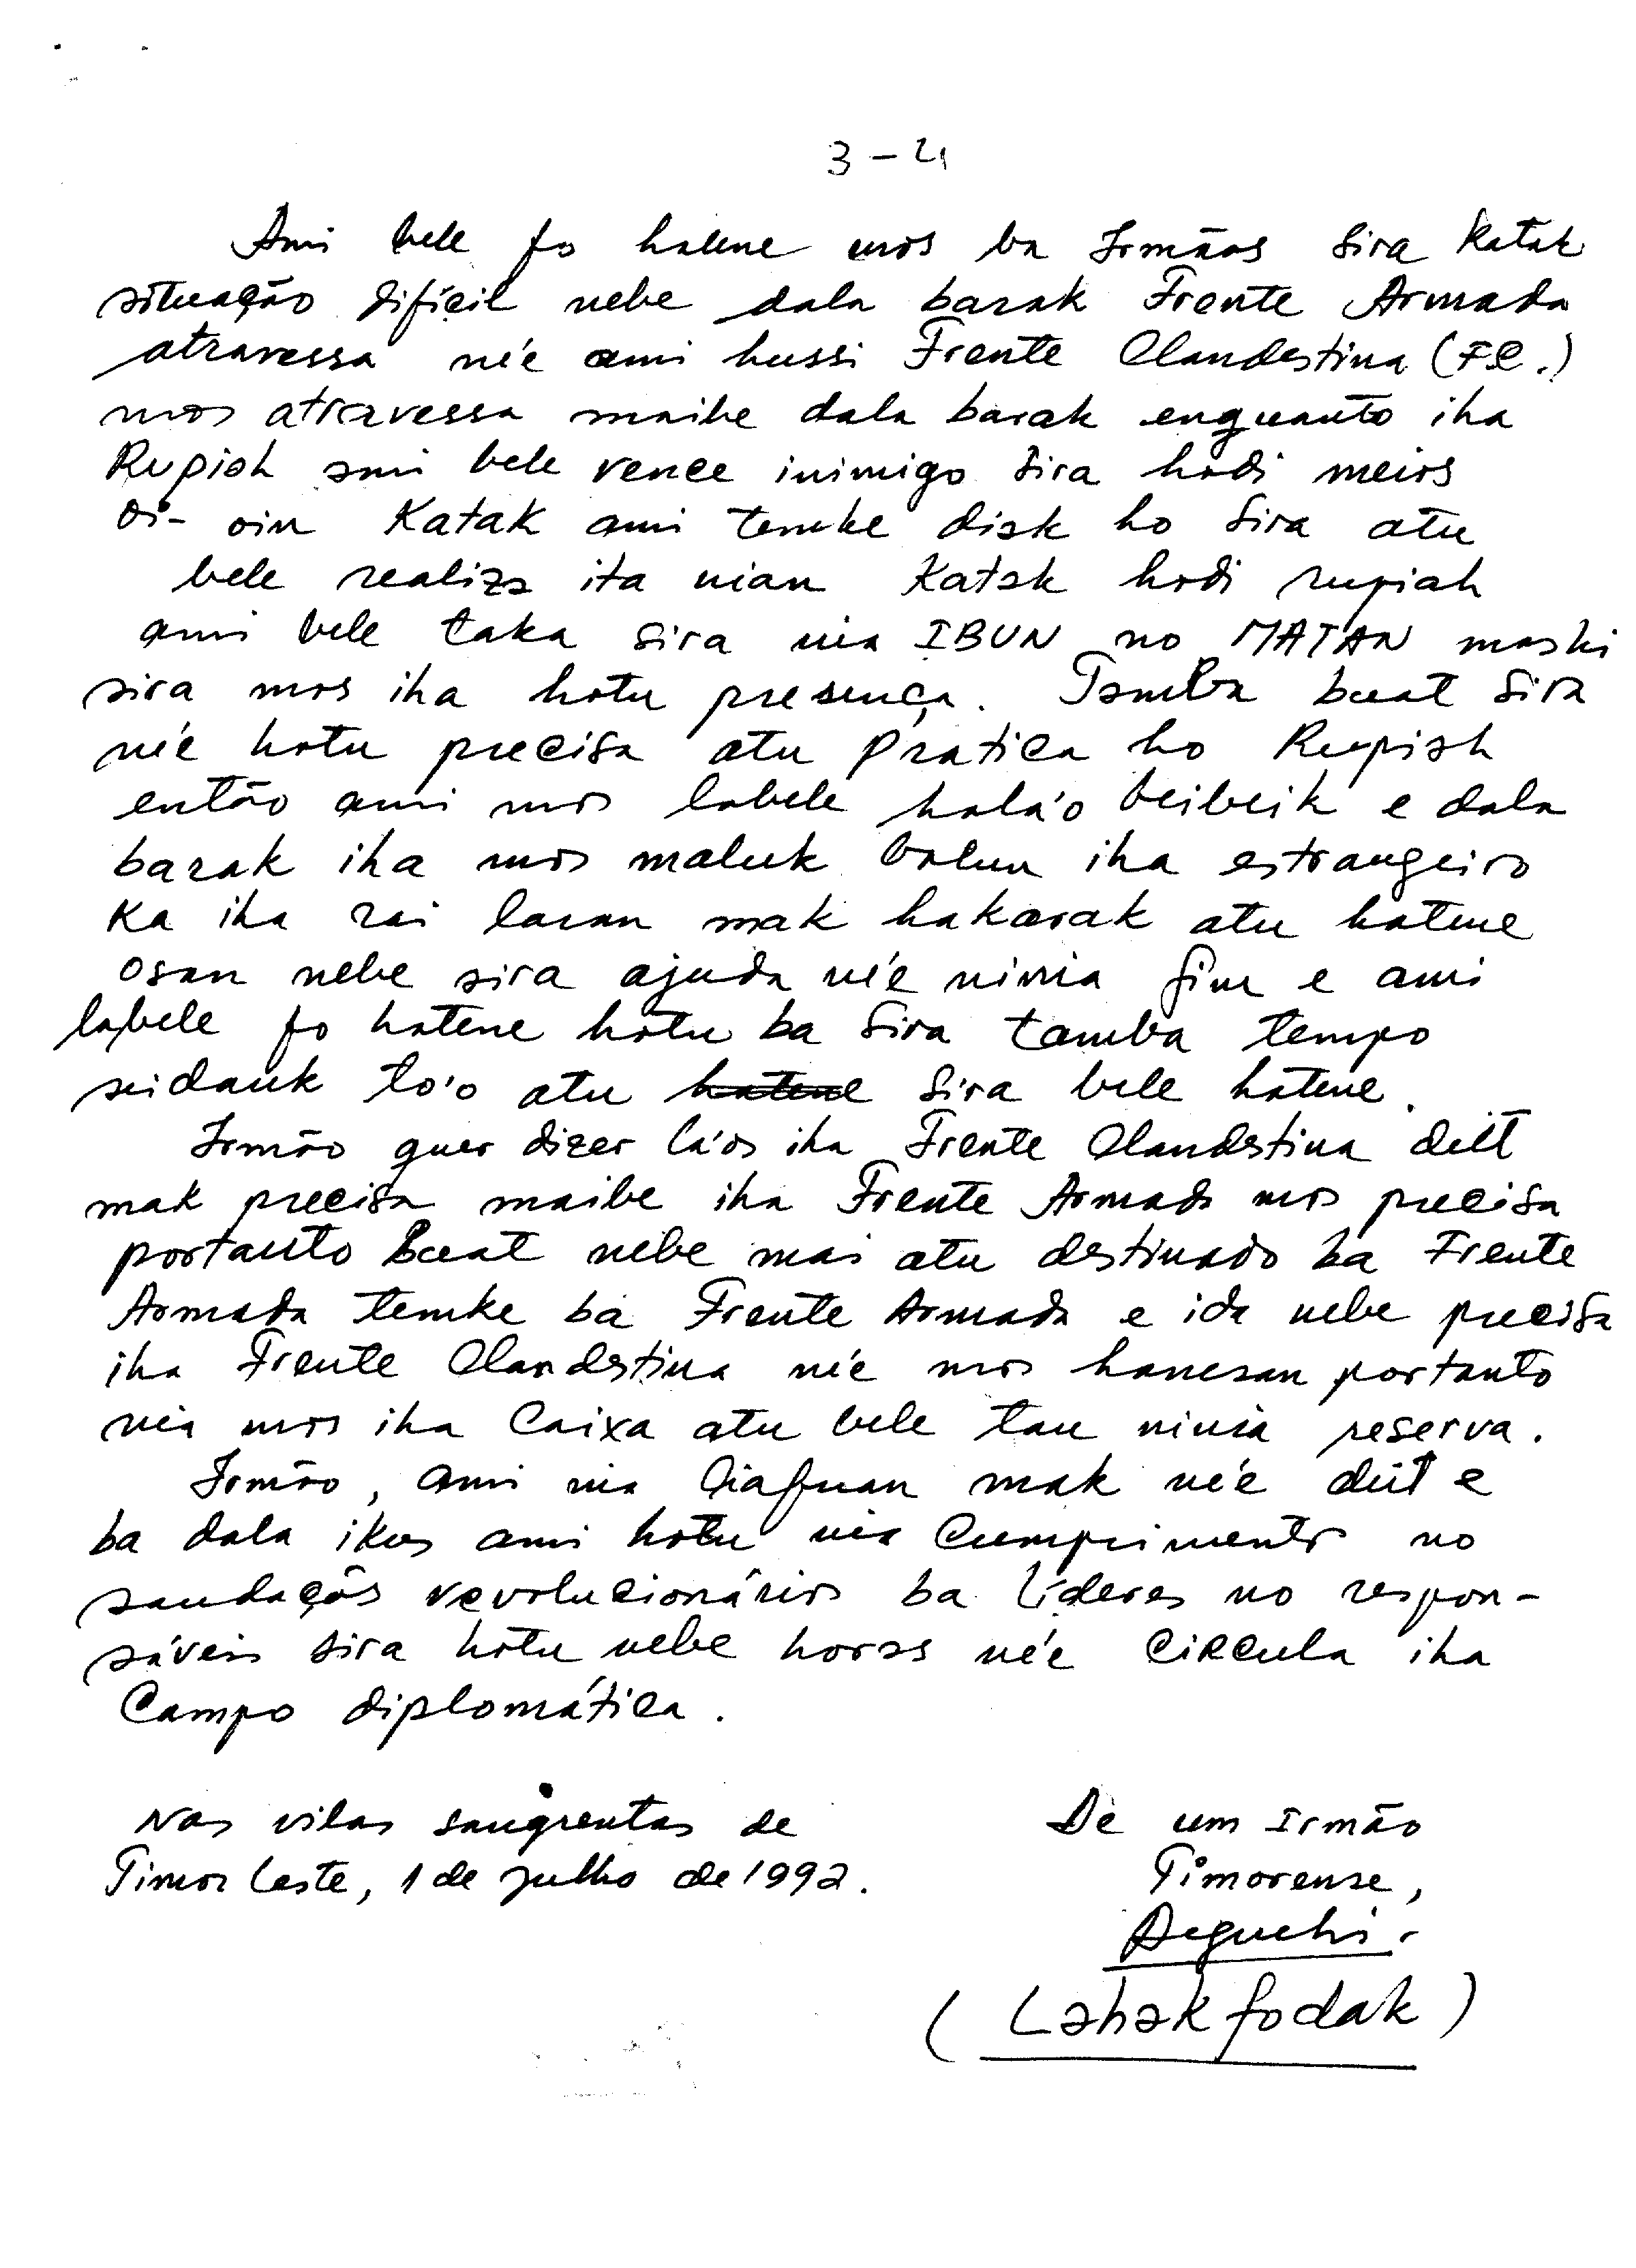 3-4
Ami bele fo hatene mos ba Irmãos sira katak
situação difícil nebe dala barak Frente Armada
atravessa né'e ami hussi Frente Clandestina (FC.)
mos atravessa maibe dala barak enquanto iha
Rupiah ami bele vence inimigo sira hodi meios
oi-oin katak ami temke disk ho sira atu
bele realiza ita nian katak hodi rupiah
ami bele taka sira nia IBUN no MATAN maski
sira mos iha hotu presença. Tamba buat sira
né'e hotu precisa atu pratica ho Rupiah
então ami mos labele halá'o beibeik e dala
barak iha mos maluk balun iha estrangeiro
ka iha rai laran mak hakarak atu hatene
osan nebe sira ajuda né'e ninia fim e ami
labele fo hatene hotu ba sira tamba tempo
seidauk to'o atu hatene sira bele hatene.
Irmão quer dizer lá'os iha Frente Clandestina deit
mak precisa maibe iha Frente Armada mos precisa
portanto buat nebe mai atu destinado ba Frente
Armada temke ba Frente Armada e ida nebe precisa
iha Frente Clandestina né'e mos hanesan portanto
nia mos iha Caixa atu bele tau ninia reserva.
Irmão, ami nia liafuan mak né'e deit e
ba dala ikus ami hotu nia Cumprimento no
saudaçõs revolucionários ba líderes no respon-
sáveis sira hotu nebe horas né'e circula iha
Campo diplomática.
Nas vilas sangrentas de
Timor Leste, 1 de Julho de 1992.
De um Irmão
Timorense,
Deguchi.
(Lahakfodak)